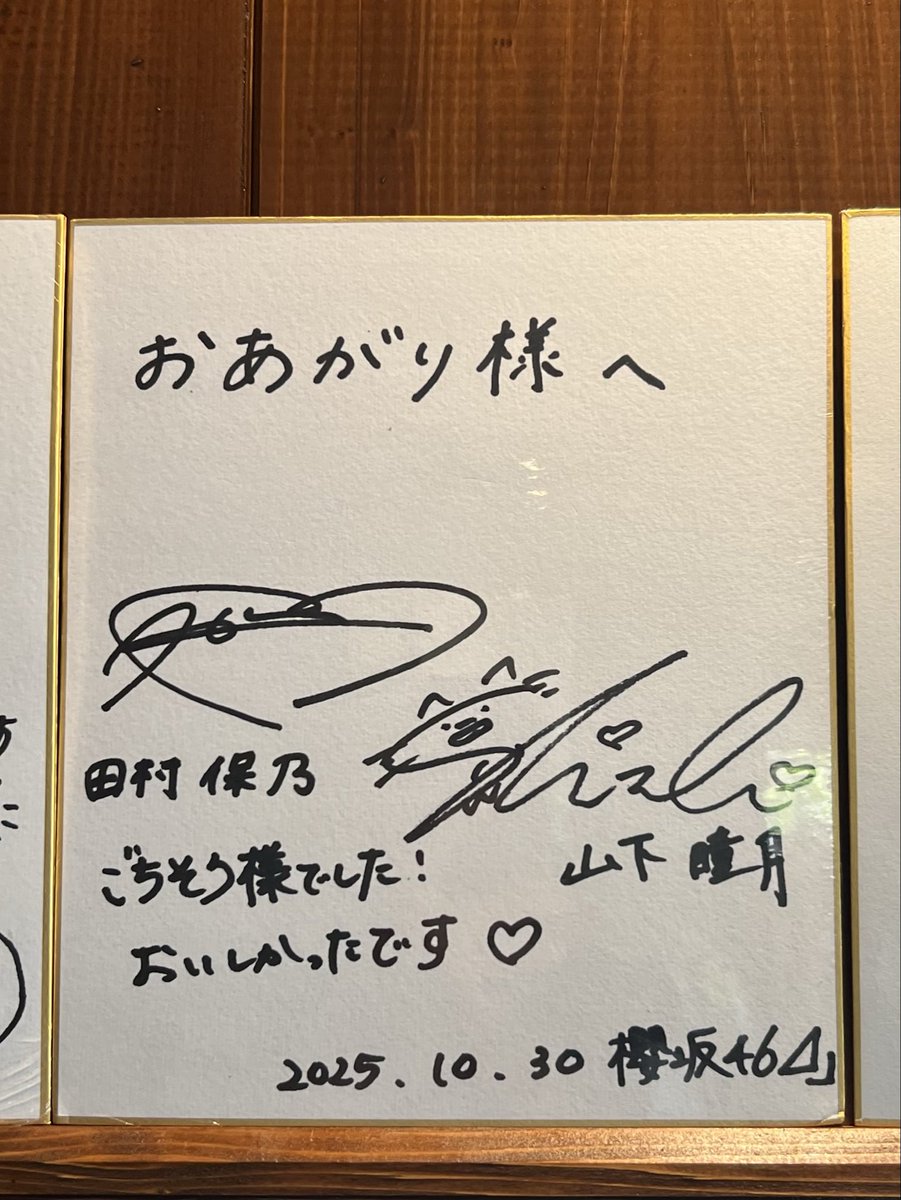 おあがり様へ
田村 保乃
山下 瞳月
ごちそう様でした!
おいしかったです♡
2025.10.30 櫻坂46